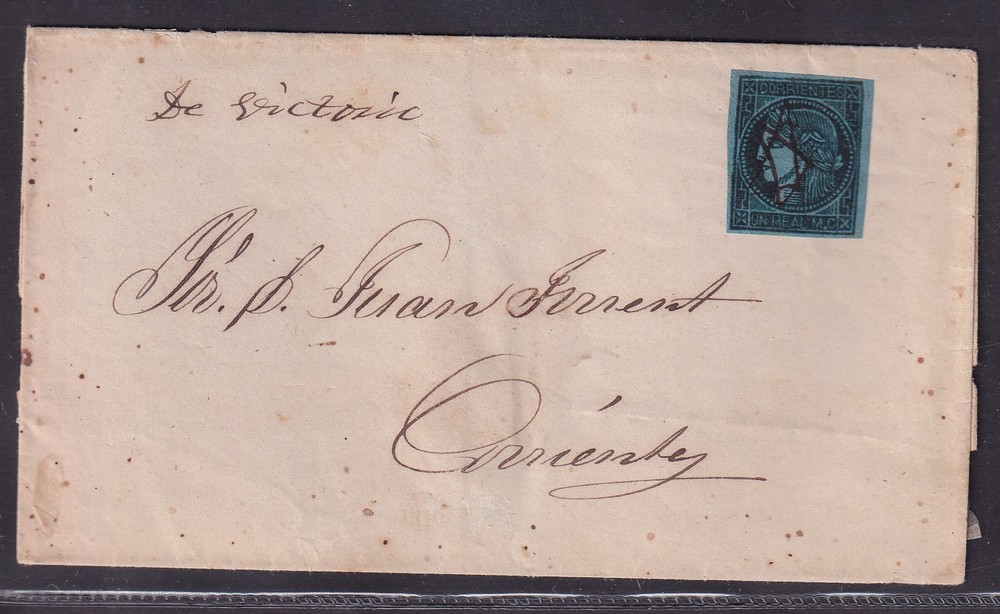 De Victoric
CORRIENTES
UN REAL M.C.
Sór. D. Juan Torrent
Corriéntes